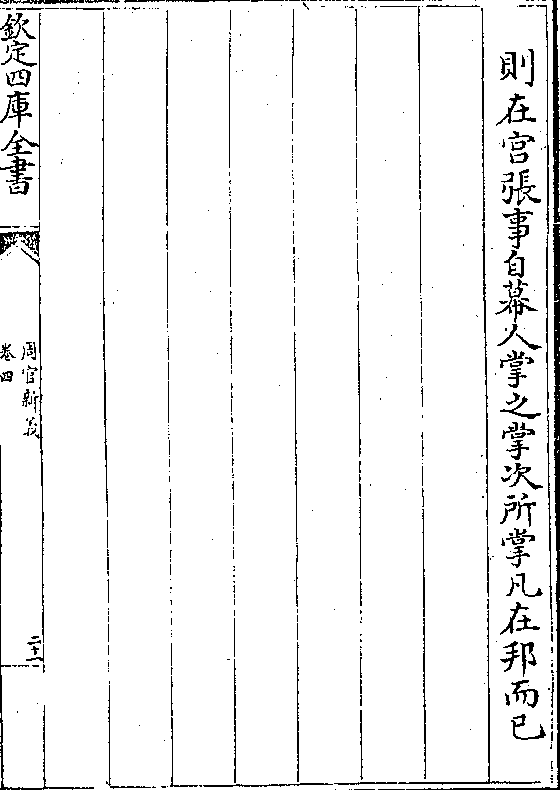 則在宫張事自幕人掌之掌次所掌凡在邦而已
欽定四庫全書
周官新義
卷四
二十一